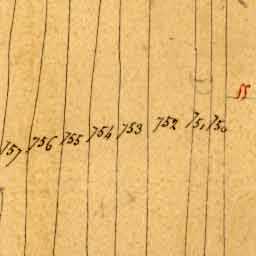 757 756 755 754 753 752 751 750